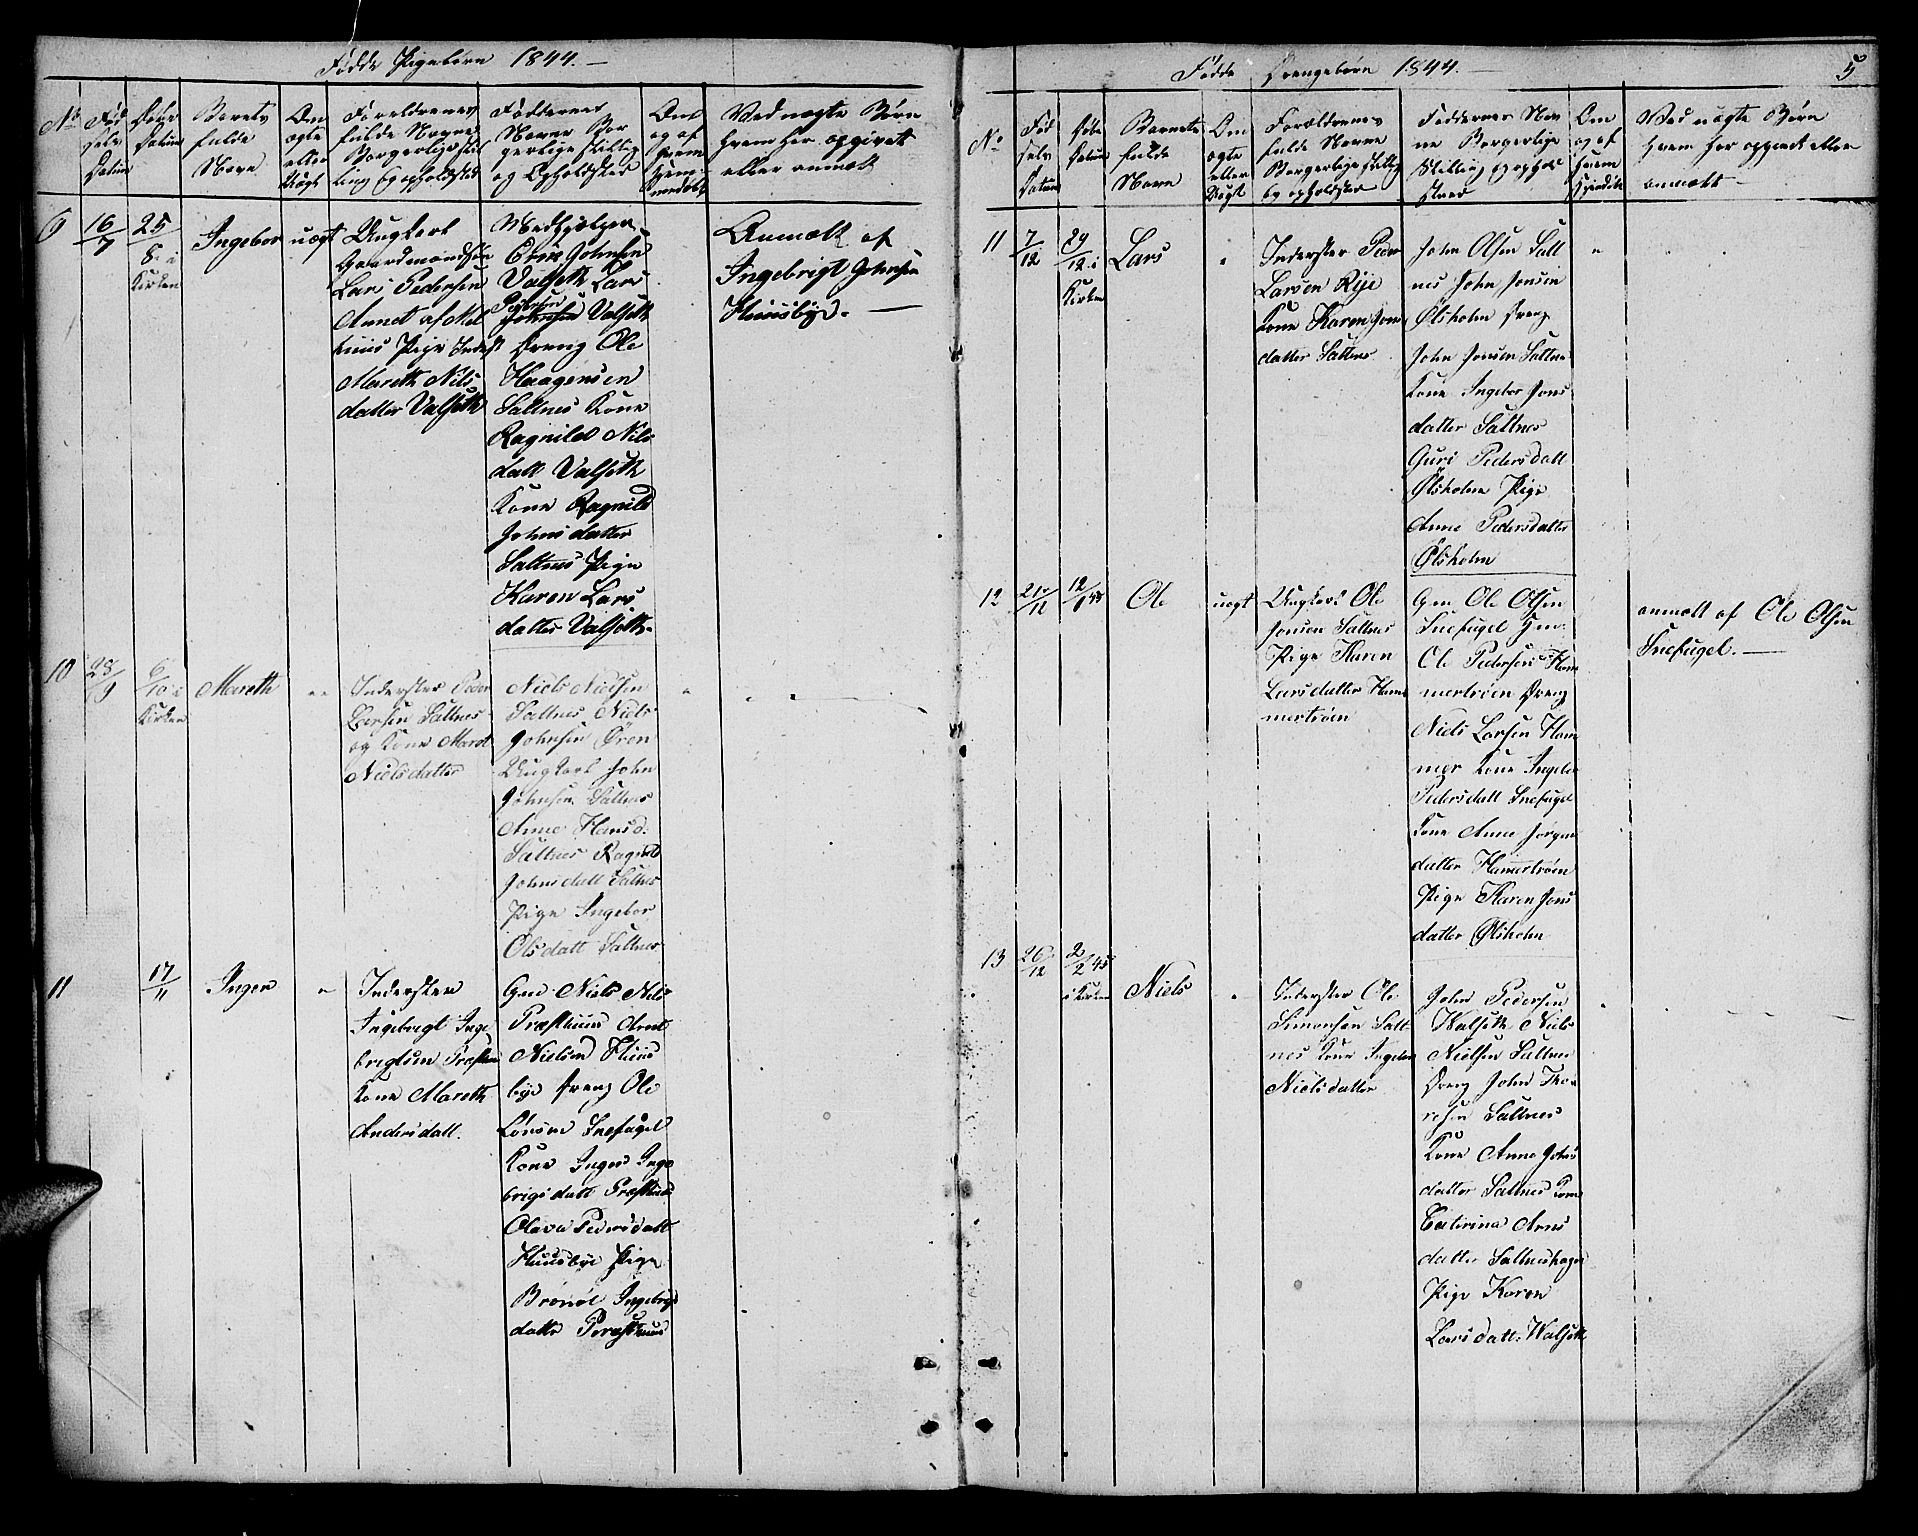 Fødde Pigebørn 1844.
No
Fød
selv
Datum
Døbe
Datum
Barnets
fulde
Navn
Om
ægte
eller
Uægt
Foreldrenes
fulde Navne
Borgerlige stil
ling og opholdsted
Faddernes
Navne Bor
gerlige stilling
og Opholdsted
Om
og af
hvem
Ved uægte Børn
hvem har opgivet
eller anmelt
9
16/7
25/8 i
Kirken
Ingebor
uægt
Ungkarl
Gaardmandsøn
Lars Pedersen
Annet af Mel
huus Pige Inderst
Mareth Nils
datter Valseth
Medhjelper
Erik Johnsen
Valseth Lars
Pedersen
Johnsen Valseth
Dreng Ole
Haagensen
Saltnes Kone
Ragnild Nils
datt Valseth
Kone Ragnild
Johnsdatter
Saltnes Pige
Karen Lars
datter Valseth
Anmelt af
Ingebrigt Johnsen
Huusbye.
10
28/9
6/10 i
Kirken
Mareth
Inderster Peder
Larsen Saltnes
og Kone Maret
Nielsdatter
Niels Nielsen
Saltnes Niels
Johnsen Øren
Ungkarl John
Johnsen Saltnes
Anne Hansd.
Saltnes Ragnild
Johnsdatt Saltnes
Pige Ingebor
Olsdatt Saltnes
11
17/11
Inger
Inderster
Ingebrigt Inge
brigtsen Præsthuus
Kone Mareth
Andersdatt.
Gmd Niels Nils
Præsthuus Arnt
Nielsen Huus
bye Dreng Ole
Larsen Snefugel
Kone Inger Inge
brigtsdatt Præsthuus
Olava Pedersdatt
Huusbye Pige
Brønøl Ingebrigs
datte Præsthuus
Fødde Drengebørn 1844.
5
No
Fød
selv
Datum
Døbe
Datum
Barnets
fulde
Navn
Om
ægte
eller
Uægt
Forældrenes
fulde Navne
Borgerlige stilling
og opholdsted
Faddernes Nav
ne Borgerlige
Stilling og ophold
sted
Om
og af
hvem
Ved uægte Børn
hvem har opgivet eller
anmelt
11
7/12
29/12 i
Kirken
Lars
Inderster Peder
Larsen Rije
Kone Karen Jons
datter Saltnes
John Olsen Salt
nes John Jonsen
Ølsholm Dreng
John Jonsen Saltnes
Kone Ingebor Jons
datter Saltnes
Guri Pedersdatt
Ølsholm Pige
Anne Pedersdatter
Ølsholm
12
12/1 45
Ole
uægt
Ungkarl Ole
Jonsen Saltnes
Pige Karen
Larsdatter Ham
mertrøen
Gm. Ole Olsen
Snefugel Gm.
Ole Pedersen Ham
mertrøen Dreng
Niels Larsen Ham
mer Kone Ingebor
Pedersdatt Snefugel
Kone Anne Jørgens
datter Hamertrøen
Pige Karen Jons
datter Ølsholm
anmelt af Ole Olsen
Snefugel.
13
26/12
2/2 45
i Kirken
Niels
Inderster Ole
Simonsen Salt
nes Kone Ingebor
Nielsdatter
John Pedersen
Walseth Niels
Nielsen Saltnes
Dreng John Tho
resen Saltnes
Kone Anne Johns
datter Saltnes Kone
Catirina Arns
datter Saltneshagen
Pige Karen
Larsdatt. Walseth